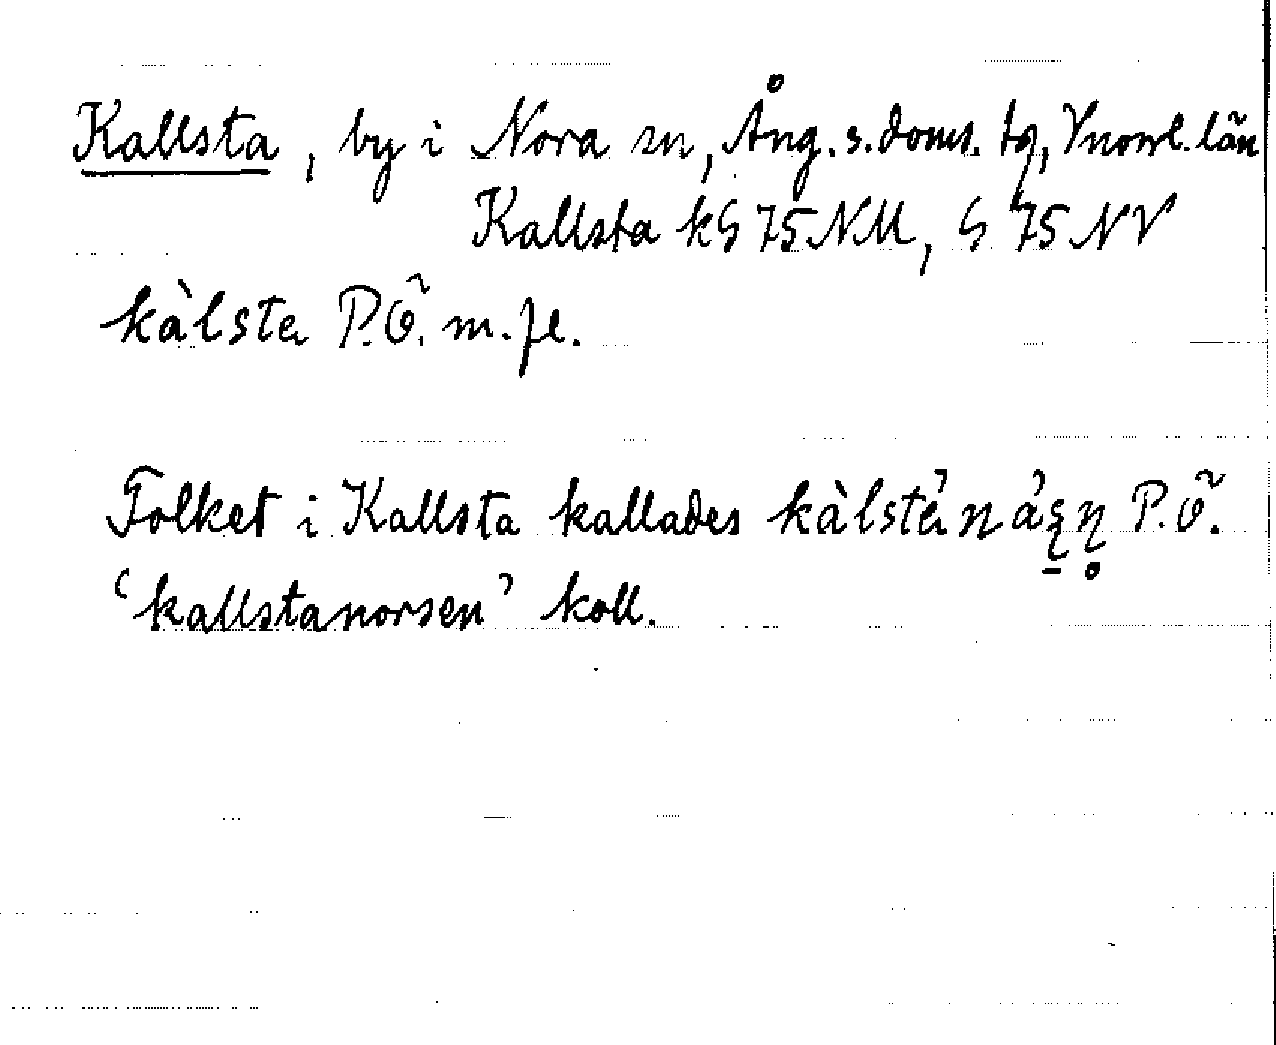 Kallsta, by i Nora sn, Ång. s. doms. tg, Vnorrl. län
Kallsta kG 75 NM, G 75 NV
kàlsta P.Ö. m.fl.
Folket i Kallsta kallades P.Ö.
‘kallstanorsen’ koll.